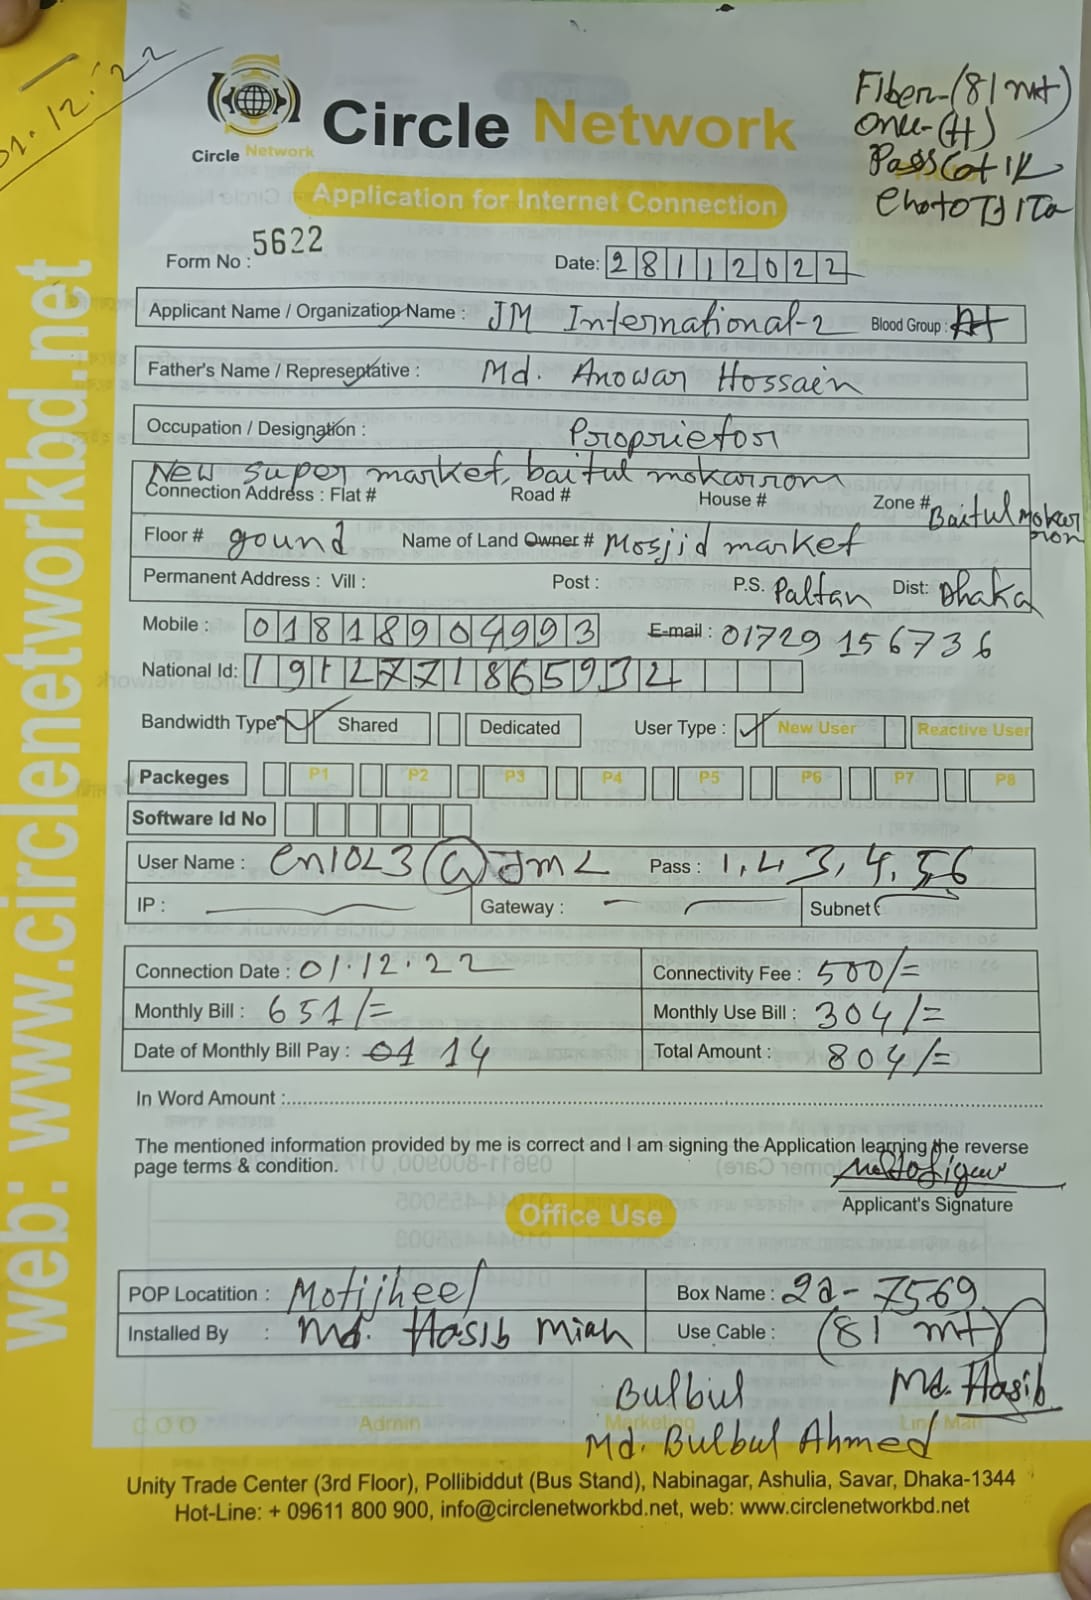 01.12.'22
Fiber-(81 mt)
onu-(H)
Circle Network
Circle Network
Application for Internet Connection
Form No : 5622
Date: 28112022
Applicant Name / Organization Name : JM International-2 Blood Group : A+
Father's Name / Representative : Md. Anowar Hossain
Occupation / Designation : Proprietor
New super market, baitul mokarrom
Connection Address : Flat # Road # House # Zone # Baitul Mokarrom
Floor # gound Name of Land Owner # Mosjid market
Permanent Address : Vill : Post : P.S. Paltan Dist: Dhaka
Mobile : 01818904993 E-mail : 01729 156736
National Id:
Bandwidth Type Shared Dedicated User Type : New User Reactive User
Packeges P1 P2 P3 P4 P5 P6 P7 P8
Software Id No
User Name : Pass :
IP : Gateway : Subnet
Connection Date : 01.12.22 Connectivity Fee : 500/=
Monthly Bill : 651/= Monthly Use Bill : 304/=
Date of Monthly Bill Pay : 01 14 Total Amount : 804/=
In Word Amount :
The mentioned information provided by me is correct and I am signing the Application learning the reverse
page terms & condition.
Applicant's Signature
Office Use
POP Locatition : Motijheel Box Name : 2a-7569
Installed By : Md. Hasib Miah Use Cable : (81 mt)
Bulbul Md. Hasib
C O O Admin Marketing Line Man
Md. Bulbul Ahmed
Unity Trade Center (3rd Floor), Pollibiddut (Bus Stand), Nabinagar, Ashulia, Savar, Dhaka-1344
Hot-Line: + 09611 800 900, info@circlenetworkbd.net, web: www.circlenetworkbd.net
web: www.circlenetworkbd.net